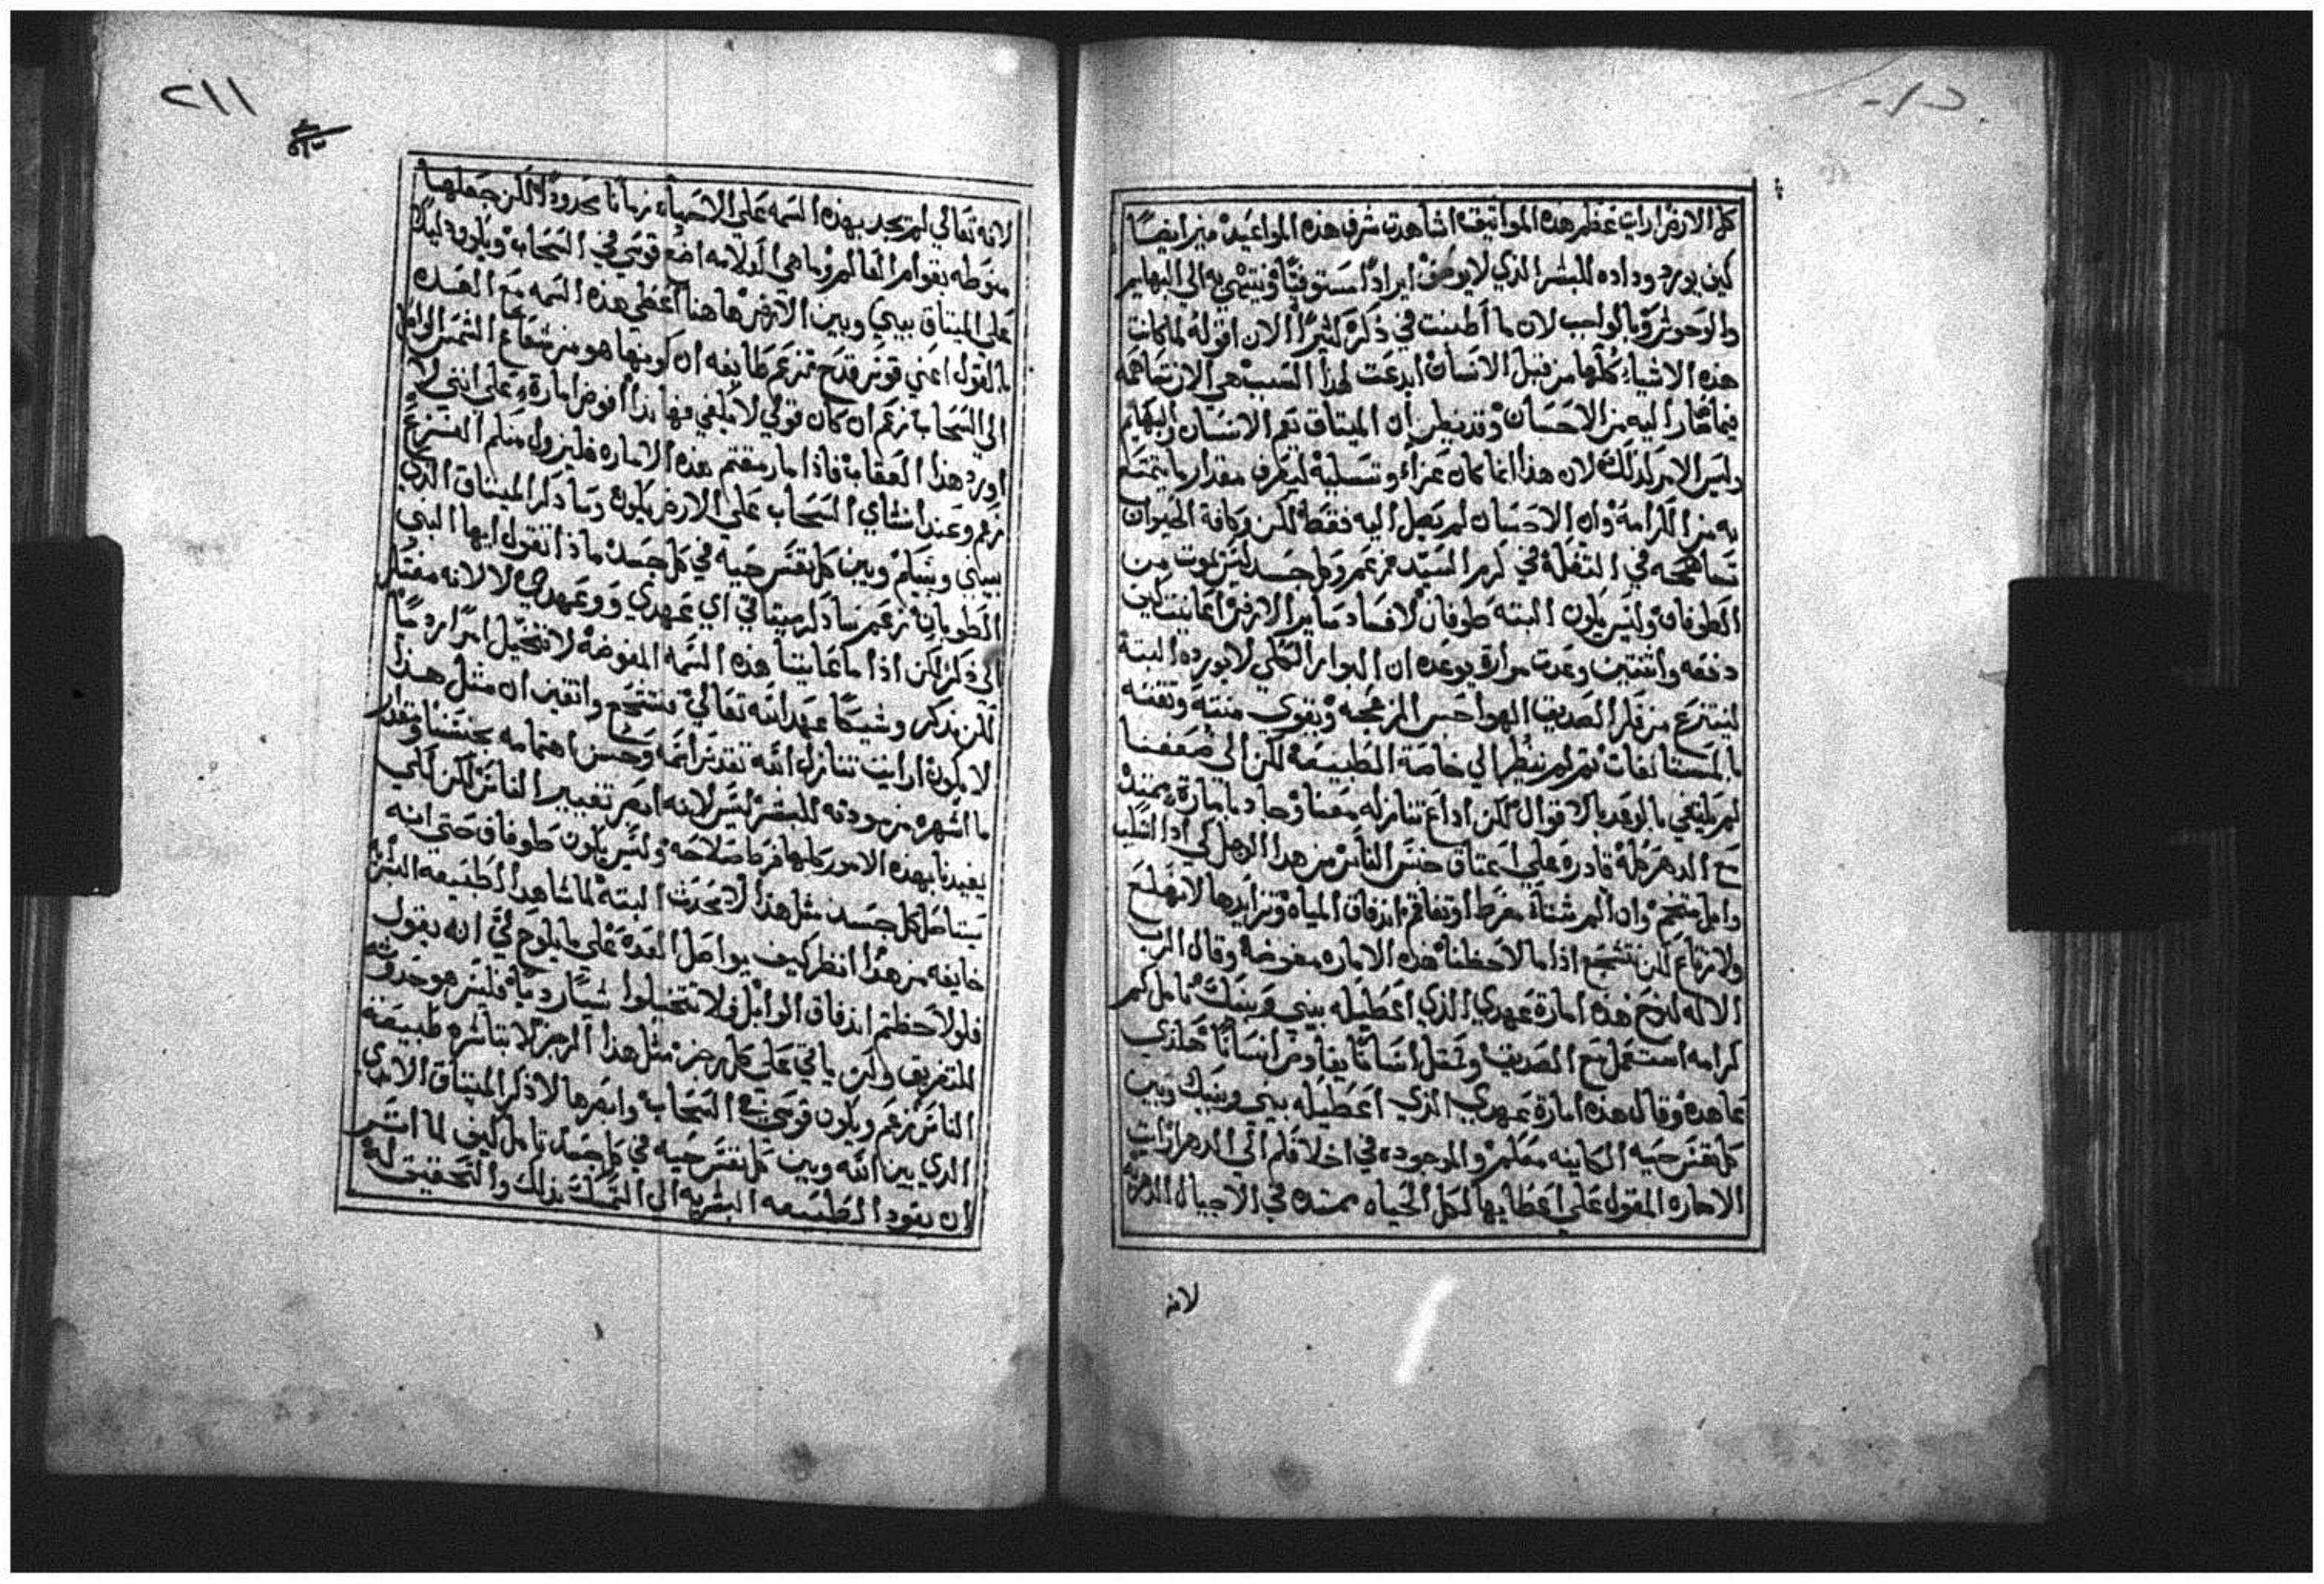 كل الارض ارايت عظم هذه المواثيق اشاهدت شرف هذه المواعيد ميز ايضًا
كيف يورد وداده للبشر الذي لا يوصف ايرادًا مستوفيًا وينتهي به الي البهايم
والوحوش وبالواجب لان ما اطنبت في ذكره كثيرًا الان اقوله لما كانت
هذه الاشيا كلها من قبل الانسان ابدعت لهذا السبب هي الان تساهمه
فيما صار اليه من الاحسان وقد يظن ان الميتاق يعم الانسان والبهايم
وليس الامر كذلك لان هذا انما كان عزاء وتسلية ليعرف مقدار ما يتمتع
به من الكرامة وان الاحسان لم يصل اليه فقط لكن وكافة الحيوان
تساهمه في التفلة في كرم السيد فزعم وكل جسد ليس يموت من
الطوفان وليس يكون البته طوفان لافساد ساير الارض اعاينت كيف
دفعه واثنتين وعدت مرارة يوعده ان البوار الكلي لا يورده البتة
لينتزع من فكر الصديق الهواجس المزعجه ويقوي منته وتقته
بالمستانفات تم لم ينظر الي خاصة الطبيعة لكن الى ضعفنا
لم يكتفي بالوعد بالاقوال لكن اذاع تنازله معنا وجاد بامارة يمتد
مع الدهر كله قادرة علي اعتاق جنس الناس من هذا الوهل لكي اذا انسكب
وابل متفجر وان الم شتاء مفرط او تفاقم اندفاق المياه وتزايدها لا نهلع
ولا نرتاع لكن نتشجع اذا ما لاحظنا هذه الاماره مفوضة وقال الرب
الاله لنوح هذه امارة عهدي الذي اعطيله بيني وبينك تامل كم
كرامه استعمل مع الصديق وكمثل انسانًا يفاوض انسانًا هكذي
عاهده وقال هذه امارة عهدي الذي اعطيله بيني وبينك وبين
كل نفس حيه الكاينه معكم والموجوده في اخلافكم الي الدهر ارايت
الاماره المقول علي اعطايها لكل الحياه ممتده في الاجيال الدهرية
لانه
٢١١
لانه تعالي لم يجد بهذه السمه علي الاحياء زمانًا محدودًا لكن جعلها
منوطه بقوام العالم وما هي العلامه اضع قوسي في السحاب ويكون دليلًا
علي الميتاق بيني وبين الارض هاهنا اعطي هذه السمه مع العده
بالقول اعني قوس قدح تزعم طايفه ان كونها هو من شعاع الشمس الواصل
الي السحاب زعم ان كان قولي لا يكفي فهانذا افوض امارة علي انني لا
اورد هذا العقاب فاذا ما رمقتم هذه الاماره فليزول عنكم الفزع
زعم وعند انشاي السحاب علي الارض يكون وساذكر الميتاق الذي
بيني وبينكم وبين كل نفس حيه في كل جسد ماذا تقول ايها النبي
الطوبان زعم ساذكر ميتاقي اي عهدي ووعدي لا لانه مفتقر
الي ذكر لكن اذا ما عاينتا هذه السمه المفوضة لا نتخيل امرًا رديًا
لكن نذكر وشيكًا عهد الله تعالي فنتشجع واثقين ان مثل هذا
لا يكون ارايت تنازل الله تقدس اسمه وحسن اهتمامه بجنسنا ومقدار
ما اشهره من مودته للبشر ليس لانه ابصر تغيير الناس لكن لكي
يفيدنا بهذه الامور كلها فرط صلاحه وليس يكون طوفان حتي انه
يتاصل كل جسد مثل هذا لا يحدث البتة لما شاهد الطبيعه البشرية
خايفه من هذا انظر كيف يواصل العدة علي ما يلوح لي انه يقول
فلو لاحظتم اندفاق الوابل فلا تتخيلوا شيًا رديًا فليس هو حدوثه
للتغريق ولن ياتي علي كل رجز مثل هذا الرجز لا بتاشره طبيعة
الناس زعم ويكون قوسي في السحاب وابصرها لاذكر الميتاق الابدي
الذي بين الله وبين كل نفس حيه في كل جسد تامل كيف لما اشر
ان يقود الطبيعه البشريه الى التمسك بذلك والتحقيق له